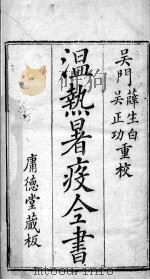 吳門
薛生白
吳正功
重校
溫熱暑疫全書
庸德堂藏板